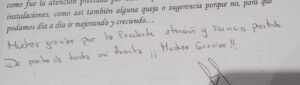 como fue la atención prestada por
instalaciones, como así también alguna queja o sugerencia porque no, para que
podamos día a día ir mejorando y creciendo...
Muchas gracias por la Excelente atención y servicio
De parte de toda mi familia ¡¡ Muchas Gracias!!